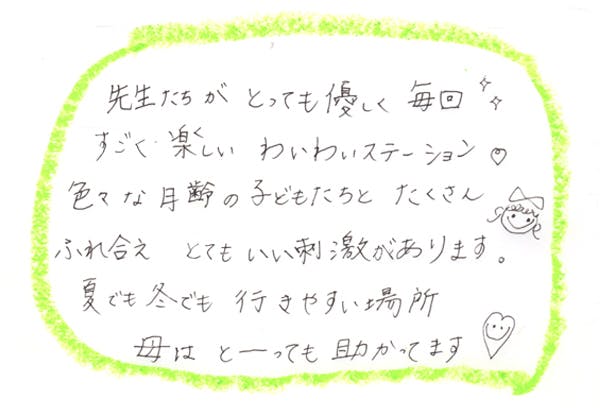 先生たちが とっても優しく 毎回
すごく楽しい わいわいステーション♡
色々な月齢の子どもたちと たくさん
ふれ合え とてもいい刺激があります。
夏でも冬でも 行きやすい場所
母は と―っても 助かってます